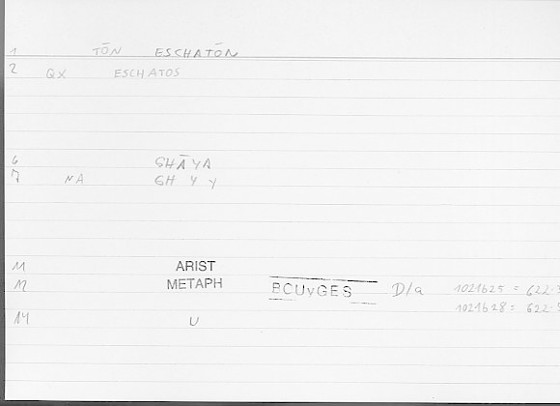 1 TŌN ESCHATŌN
2 QX ESCHATOS
6 GHĀYA
7 NA GH Y Y
11 ARIST
12 METAPH BCUvGES D/a 1021b25 = 622.
1021b28 = 622.
14 U